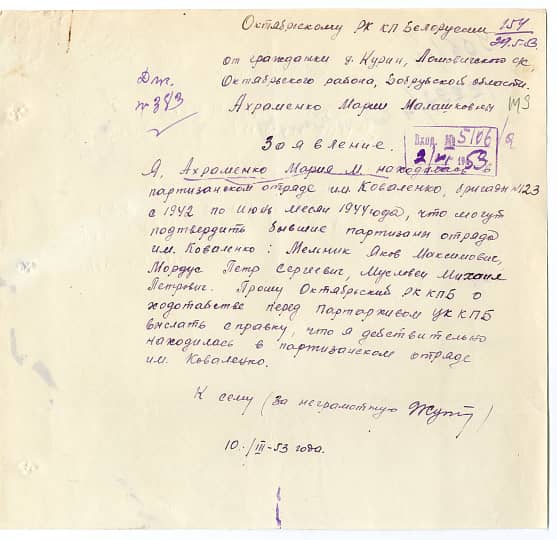 Октябрьскому РК КП Белоруссии 154
29.5.53
от гражданки д. Курин, Ломовичского с/с,
Октябрьского района, Бобруйской области.
Ахраменко Марии Малашковны
№ 383
Заявление.
Вход. № 5106
2/VI 1953.
Я, Ахраменко Мария М. находилась в
партизанском отряде им. Коваленко, бригады №123
с 1942 по июнь месяц 1944 года, что могут
подтвердить бывшие партизаны отряда
им. Коваленко: Мельник Яков Максимович,
Мордус Петр Сергеевич, Мусловец Михаил
Петрович. Прошу Октябрьский РК КПБ о
ходотайстве перед Партархивом ЦК КПБ
выслать справку, что я действительно
находилась в партизанском отряде
им. Коваленко.
К сему (за неграмотную
10/III-53 года.